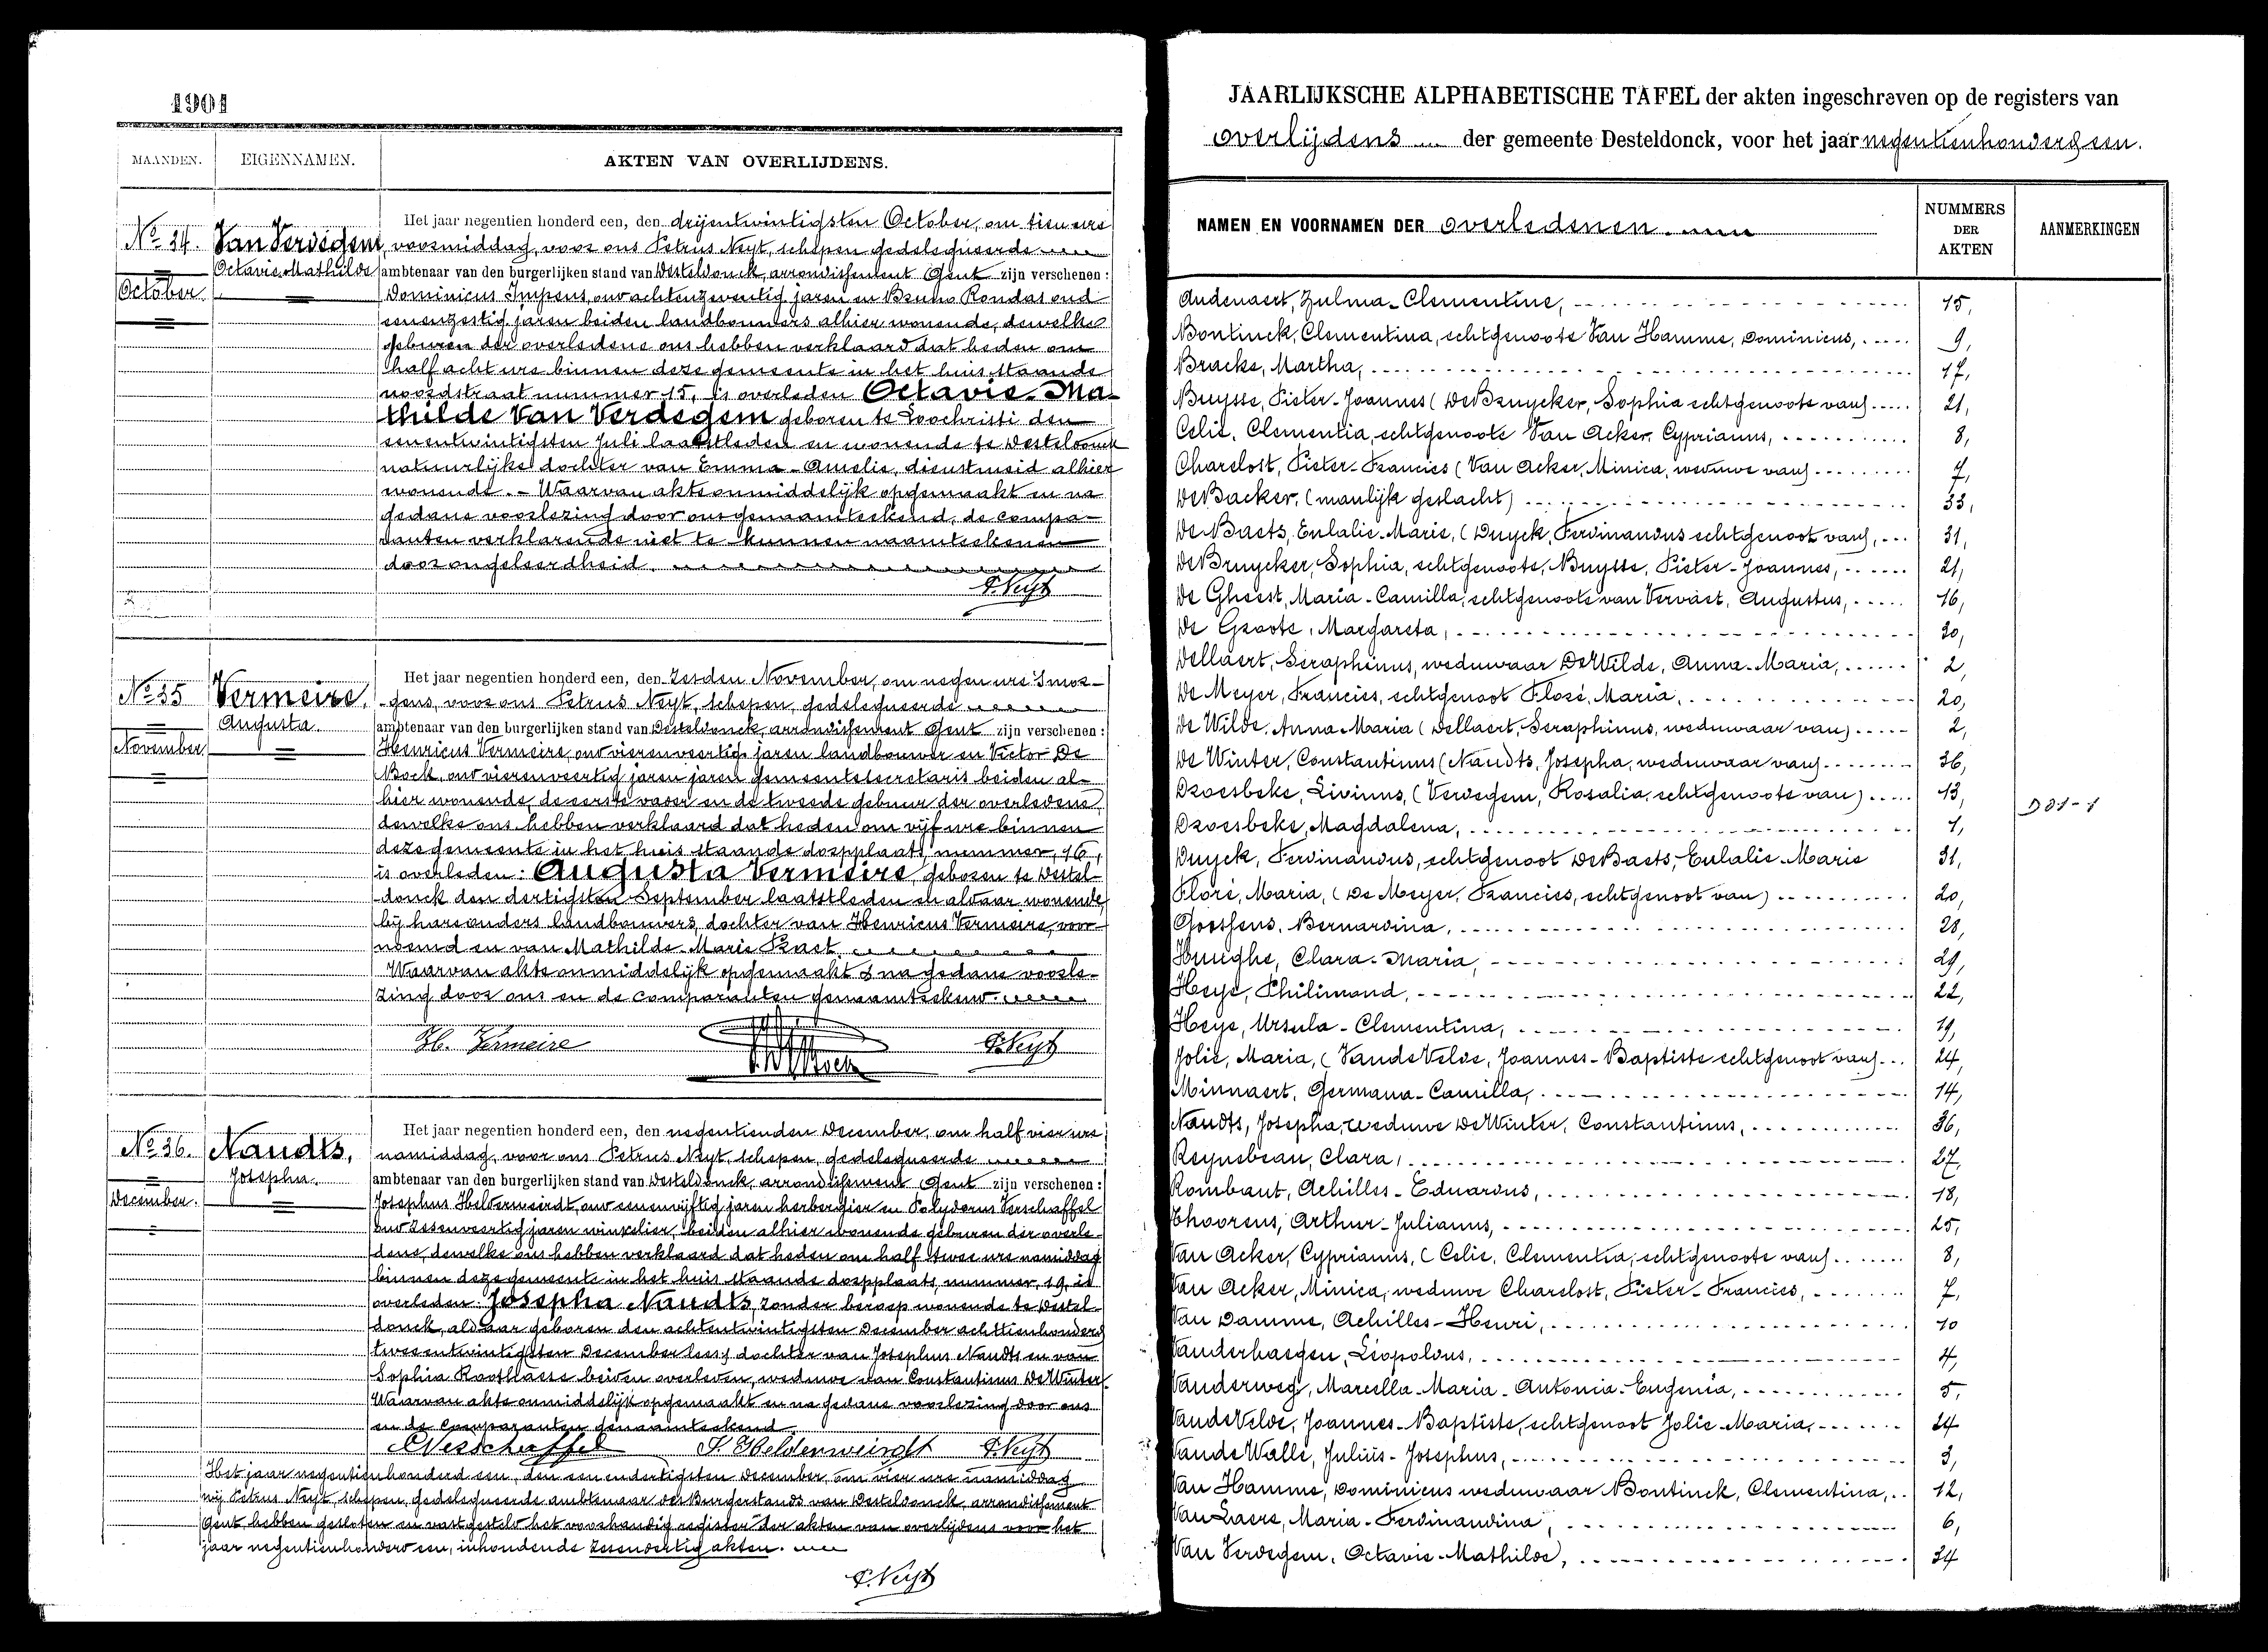 1901
MAANDEN. EIGENNAMEN. AKTEN VAN OVERLIJDENS.
Het jaar negentien honderd een, den drijentwintigsten October, om tien ure
No 34. Van Verdegem, voormiddag, voor ons Petrus Neyt, schepen gedelegueerde
Octavie Mathilde ambtenaar van den burgerlijken stand van Desteldonck, arrondissement Gent zijn verschenen:
October Dominicus Impens, oud achtenzeventig jaren en Bruno Rondas oud
eenenzestig jaren beiden landbouwers alhier wonende, dewelke
geburen der overledene ons hebben verklaard dat heden om
half acht ure binnen deze gemeente in het huis staande
noordstraat nummer 15, is overleden Octavie-Ma-
thilde Van Verdegem geboren te Loochristi den
eenentwintigsten Juli laatstleden en wonende te Desteldonck
natuurlijke dochter van Emma-Amelie, dienstmeid alhier
wonende. - Waarvan akte onmiddelijk opgemaakt en na
gedane voorlezing door ons genaamteekend, de compa-
ranten verklarende niet te kunnen naamteekenen
door ongeleerdheid.
P. Neyt
Het jaar negentien honderd een, den zesden November, om negen ure 's mor-
No 35 Vermeire, gens, voor ons Petrus Neyt, schepen, gedelegueerde
Augusta. ambtenaar van den burgerlijken stand van Desteldonck, arrondissement Gent zijn verschenen:
November Henricus Vermeire, oud vierenveertig jaren landbouwer en Victor De
Bock, oud vierenveertig jaren jaren gemeentesecretaris beiden al-
hier wonende, de eerste vader en de tweede gebuur der overledene
dewelke ons hebben verklaard dat heden om vijf ure binnen
deze gemeente in het huis staande dorpplaats nummer, 16,
is overleden: Augusta Vermeire, geboren te Destel-
donck den dertigsten September laatstleden en aldaar wonende
bij hare ouders landbouwers, dochter van Henricus Vermeire, voor-
noemd en van Mathilde-Marie Praet.
Waarvan akte onmiddelijk opgemaakt & na gedane voorle-
zing door ons en de comparanten genaamteekend.
H. Vermeire P. Neyt
Het jaar negentien honderd een, den negentienden December, om half vier ure
No 36. Naudts, namiddag, voor ons Petrus Neyt, schepen, gedelegueerde
Josepha. ambtenaar van den burgerlijken stand van Desteldonck, arrondissement Gent zijn verschenen:
December. Josephus Helderweirdt, oud eenenvijftig jaren herbergier en Polydorus Verschaffel
oud zesenveertig jaren winkelier, beiden alhier wonende geburen der overle-
dene, dewelke ons hebben verklaard dat heden om half twee ure namiddag
binnen deze gemeente in het huis staande dorpplaats, nummer, 19, is
overleden: Josepha Naudts, zonder beroep wonende te Destel-
donck, aldaar geboren den achtentwintigsten December achttienhonderd
tweeentwintig dochter van Josephus Naudts en van
Sophia beiden overleden, weduwe van Constantinus De Winter.
Waarvan akte onmiddelijk opgemaakt en na gedane voorlezing door ons
en de comparanten genaamteekend.
P. Verschaffel J. Helderweirdt P. Neyt
Het jaar negentienhonderd een, den eenendertigsten December, om vier ure namiddag
wij Petrus Neyt, schepen, gedelegueerde ambtenaar des Burgerstands van Desteldonck, arrondissement
Gent hebben gesloten en vastgesteld het voorhandig register der akten van overlijdens voor het
jaar negentienhonderd een, inhoudende zesendertig akten.
P. Neyt
JAARLIJKSCHE ALPHABETISCHE TAFEL der akten ingeschreven op de registers van
overlijdens der gemeente Desteldonck, voor het jaar negentienhonderd een.
NAMEN EN VOORNAMEN DER overledenen. NUMMERS DER AKTEN AANMERKINGEN
Audenaert, Zulma-Clementine, 15,
Bontinck, Clementina, echtgenoote Van Hamme, Dominicus, 9,
Bracke, Martha, 17,
Buysse, Pieter-Joannes (De Bruycker, Sophia echtgenoote van) 21,
Celie, Clementia, echtgenoote Van Acker, Cyprianus, 8,
Charelost, Pieter-Francies (Van Acker, Minica, weduwe van) 7,
De Backer, (manlijk geslacht) 33,
De Baets, Eulalie-Marie, (Duyck, Ferdinandus echtgenoot van), 31,
De Bruycker, Sophia, echtgenoote, Buysse, Pieter-Joannes, 21,
De Gheest, Maria-Camilla, echtgenoote van Vervaet, Augustus, 16,
De Groote, Margareta, 30,
Dellaert, Seraphinus, weduwaar De Wilde, Anna-Maria, 2,
De Meyer, Francies, echtgenoot Floré, Maria, 20,
De Wilde, Anna Maria (Dellaert, Seraphinus, weduwaar van) 2,
De Winter, Constantinus (Naudts, Josepha, weduwaar van) 36,
Droesbeke, Livinus, (Verdegem, Rosalia, echtgenoote van) 13,
D31-1
Droesbeke, Magdalena, 1,
Duyck, Ferdinandus, echtgenoot De Baets, Eulalie-Marie 31,
Floré, Maria, (De Meyer, Francies, echtgenoot van) 20,
Goethens, Bernardina, 28,
Hueghe, Clara-Maria, 29,
Heye, Philimond, 22,
Heye, Ursula-Clementina, 19,
Jolie, Maria, (Van de Velde, Joannes-Baptiste echtgenoot van) 24,
Minnaert, Germana-Camilla, 14,
Naudts, Josepha, weduwe De Winter, Constantinus, 36,
Reynebeau, Clara, 27,
Rombaut, Achilles-Eduardus, 18,
Thoorens, Arthur-Julianus, 25,
Van Acker, Cyprianus, (Celie, Clementia, echtgenoote van) 8,
Van Acker, Minica, weduwe Charelost, Pieter-Francies, 7,
Van Damme, Achilles-Henri, 10
Vanderhaegen, Léopoldus, 4,
Vanderweg, Marcella-Maria-Antonia-Eugenia, 5,
Van de Velde, Joannes-Baptiste, echtgenoot Jolie-Maria, 24
Van de Walle, Julius-Josephus, 3,
Van Hamme, Dominicus weduwaar Bontinck, Clementina, 12,
Van Laere, Maria-Ferdinandina, 6,
Van Verdegem, Octavie-Mathilde, 34